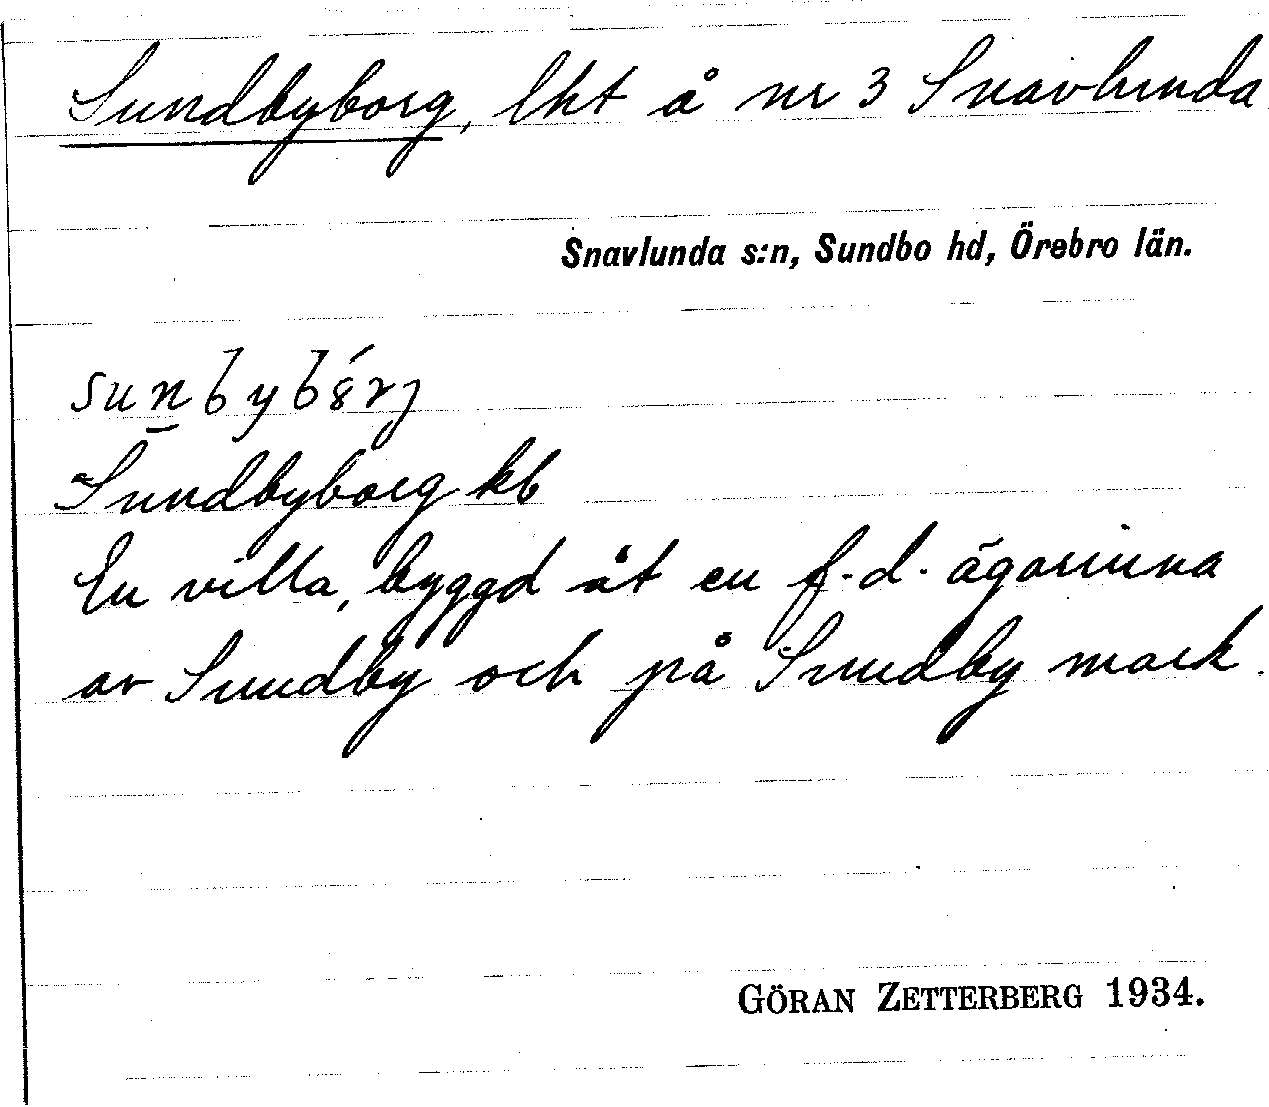 Sundbyborg, lht å nr 3 Snavlunda
Snavlunda s:n, Sundbo hd, Örebro län.
Sundbyborg kb
En villa, byggd åt en f.d. ägarinna
av Sundby och på Sundby mark.
GÖRAN ZETTERBERG 1934.